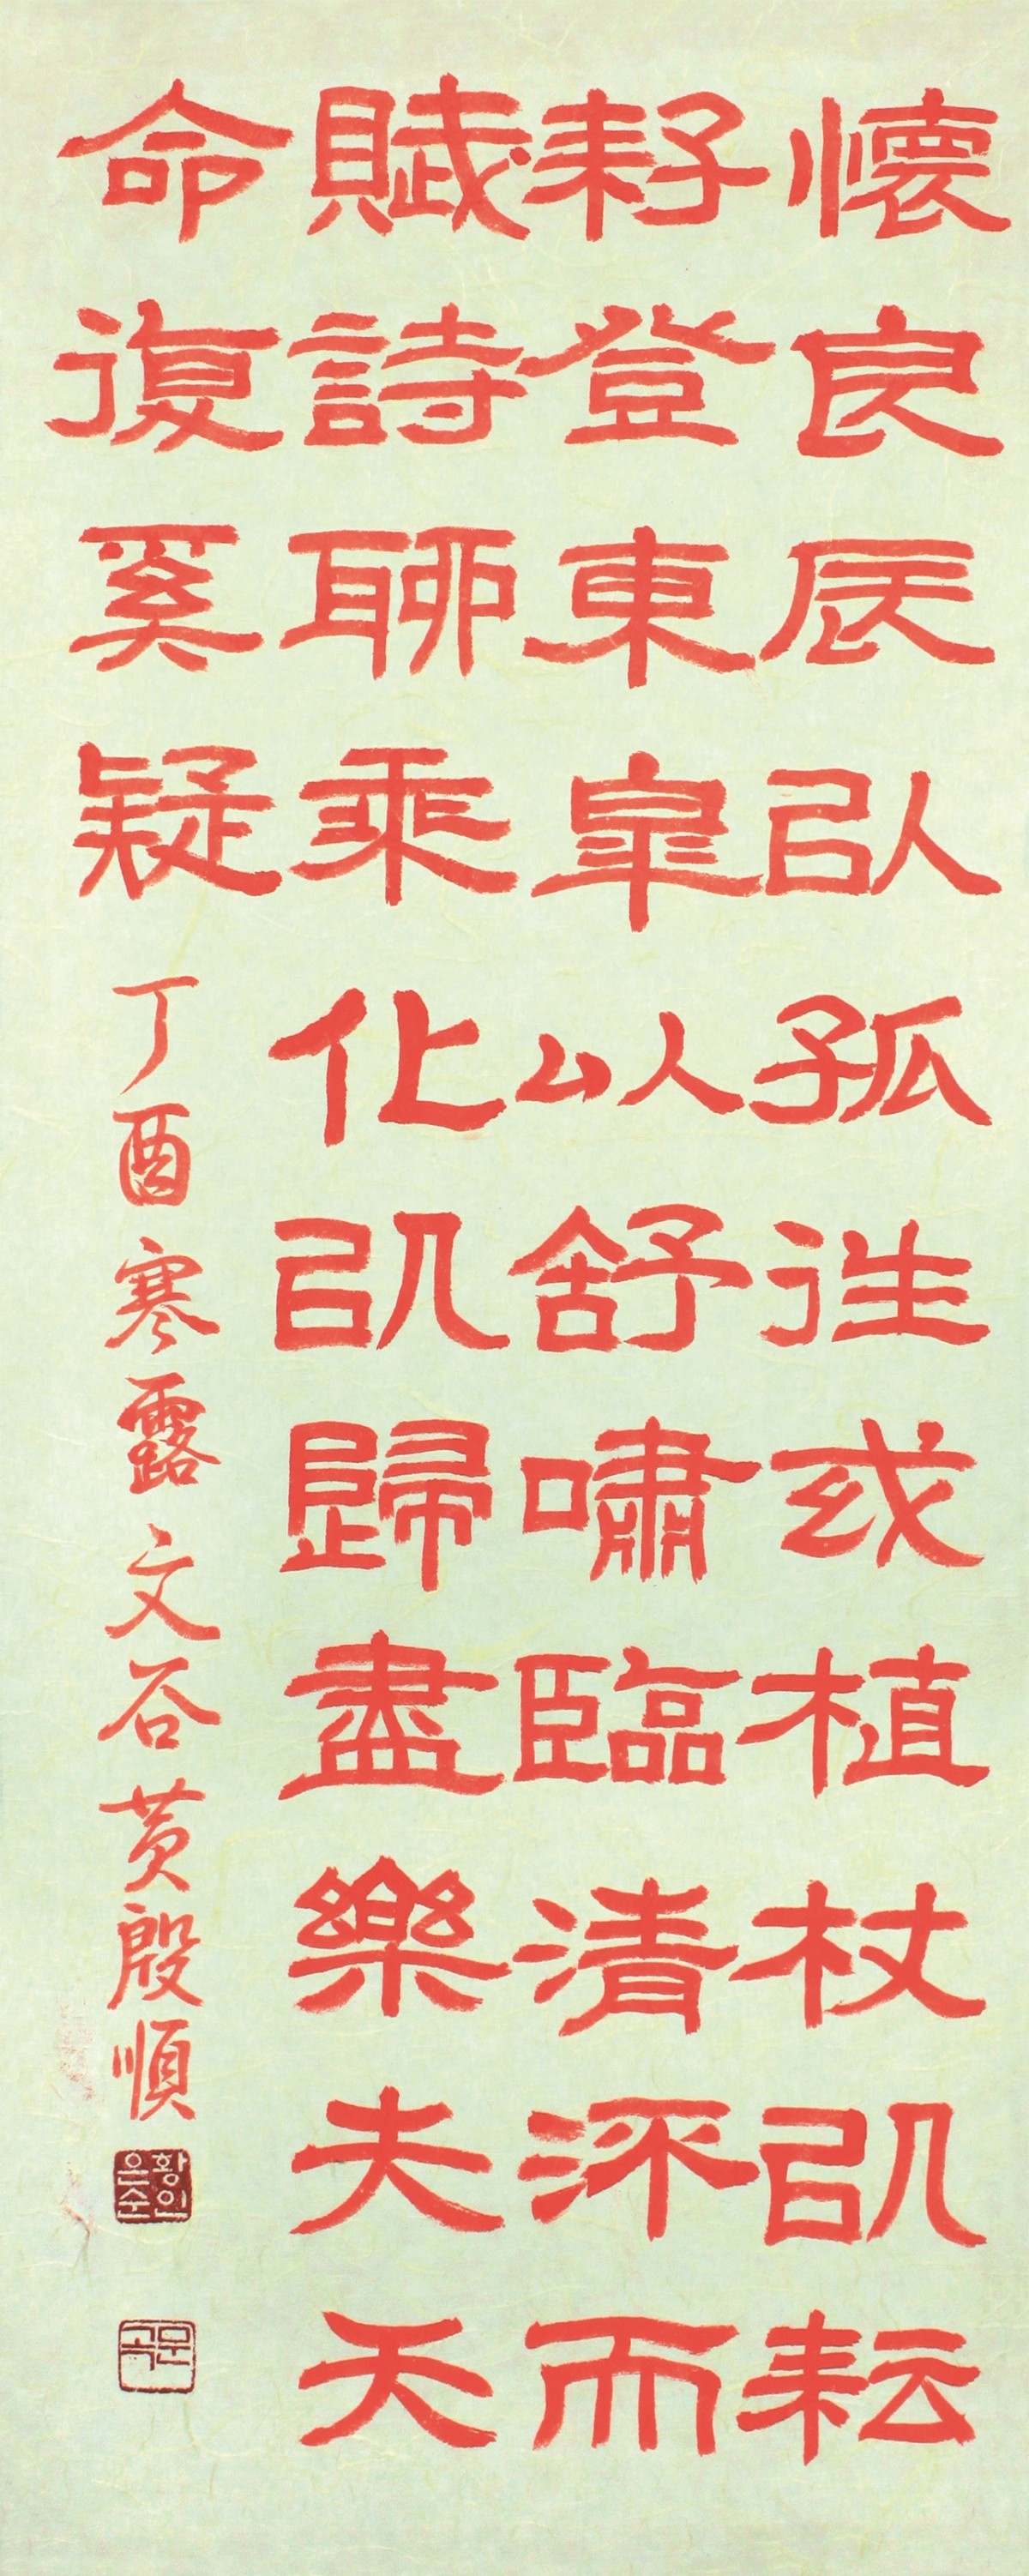 懷良辰以孤往或植杖以耘
耔登東皐以舒嘯臨清流而
賦詩聊乘化以歸盡樂夫天
命復奚疑 丁酉寒露文谷黃殷順
황인은순
문곡